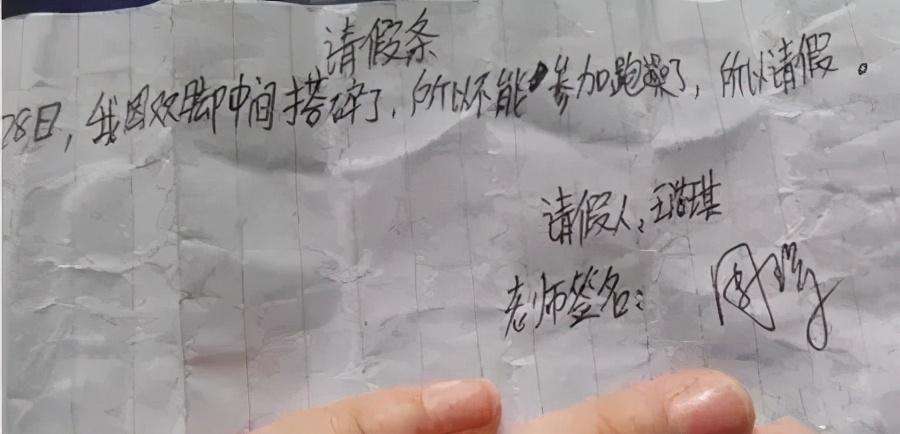 请假条
28日，我因双脚中间搭碎了，所以不能参加跑操了，所以请假。
请假人：王浩琪
老师签名：